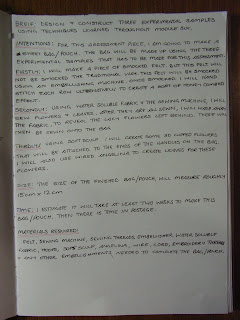 BRIEF: DESIGN + CONSTRUCT THREE EXPERIMENTAL SAMPLES
USING TECHNIQUES LEARNED THROUGHOUT MODULE SIX.
INTENTIONS: FOR THIS ASSESSMENT PIECE, I AM GOING TO MAKE A
BAG/POUCH. THE BAG WILL BE MADE UP USING THE THREE
EXPERIMENTAL SAMPLES THAT HAS TO BE MADE FOR THIS ASSESSMENT.
FIRSTLY: I WILL MAKE A PIECE OF EMBOSSED FELT, BUT THIS FELT WILL
NOT BE EMBOSSED THE TRADITIONAL WAY. THIS FELT WILL BE EMBOSSED
USING AN EMBELLISHING MACHINE. ONCE EMBOSSED I WILL HAND
STITCH EACH ROW TO CREATE A SORT OF HONEY COMBED
EFFECT.
SECONDLY: USING WATER SOLUBLE FABRIC + THE SEWING MACHINE, I WILL
SEW FLOWERS + LEAVES. AFTER THEY ARE ALL SEWN, I WILL
THE FABRIC, TO REVEAL THE LACY FLOWERS LEFT BEHIND. THESE WILL
THEN BE SEWN ONTO THE BAG.
THIRDLY: USING SOFT SCULP, I WILL FORM 3D CUPPED FLOWERS
THAT WILL BE ATTACHED TO THE ENDS OF THE HANDLES ON THE BAG.
I WILL ALSO USE WIRED ANGELINA TO CREATE LEAVES FOR THESE
FLOWERS.
SIZE: THE SIZE OF THE FINISHED BAG/POUCH, WILL MEASURE ROUGHLY
15CM X 12CM
TIME: I ESTIMATE IT WILL TAKE AT LEAST TWO WEEKS TO MAKE THIS
BAG/POUCH. THEN THERE IS TIME IN POSTAGE.
MATERIALS REQUIRED:
FELT, SEWING MACHINE, SEWING THREADS, EMBELLISHER, WATER SOLUBLE
FABRIC, HOOPS, SOFT SCULP, ANGELINA, WIRE, CORD, EMBROIDERY THREADS
+ ANY OTHER EMBELLISHMENTS NEEDED TO COMPLETE THE BAG/POUCH.